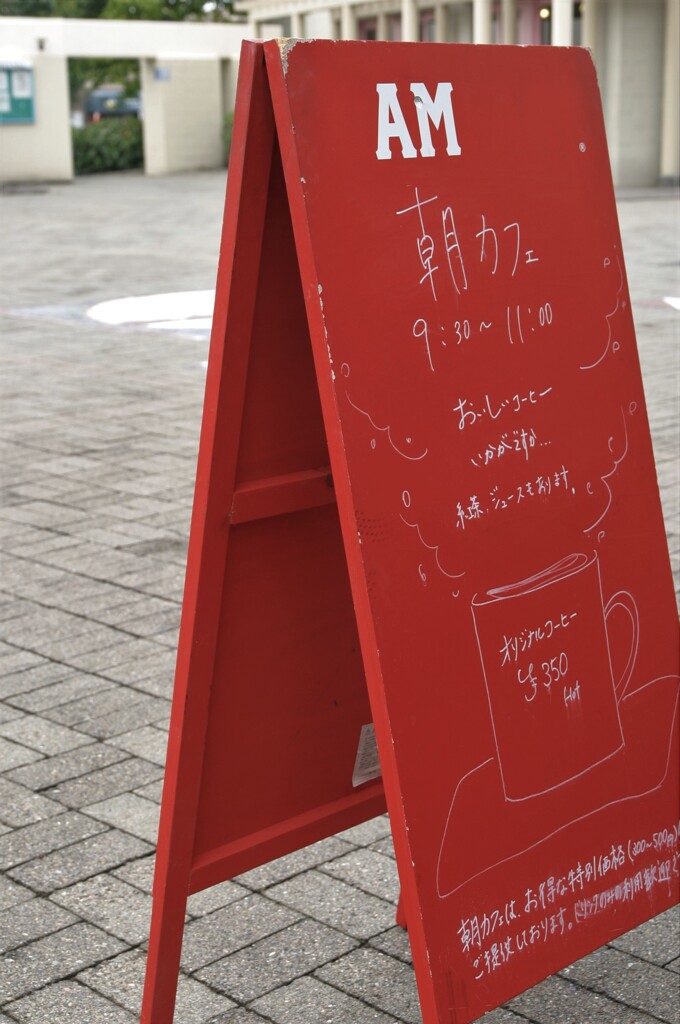 AM
朝カフェ
9:30~11:00
おいしいコーヒー
いかがですか...
紅茶・ジュースもあります。
オリジナルコーヒー
¥350
Hot
朝カフェは、お得な特別価格(200~500円)
ご提供しております。ドリンクのみの利用歓迎